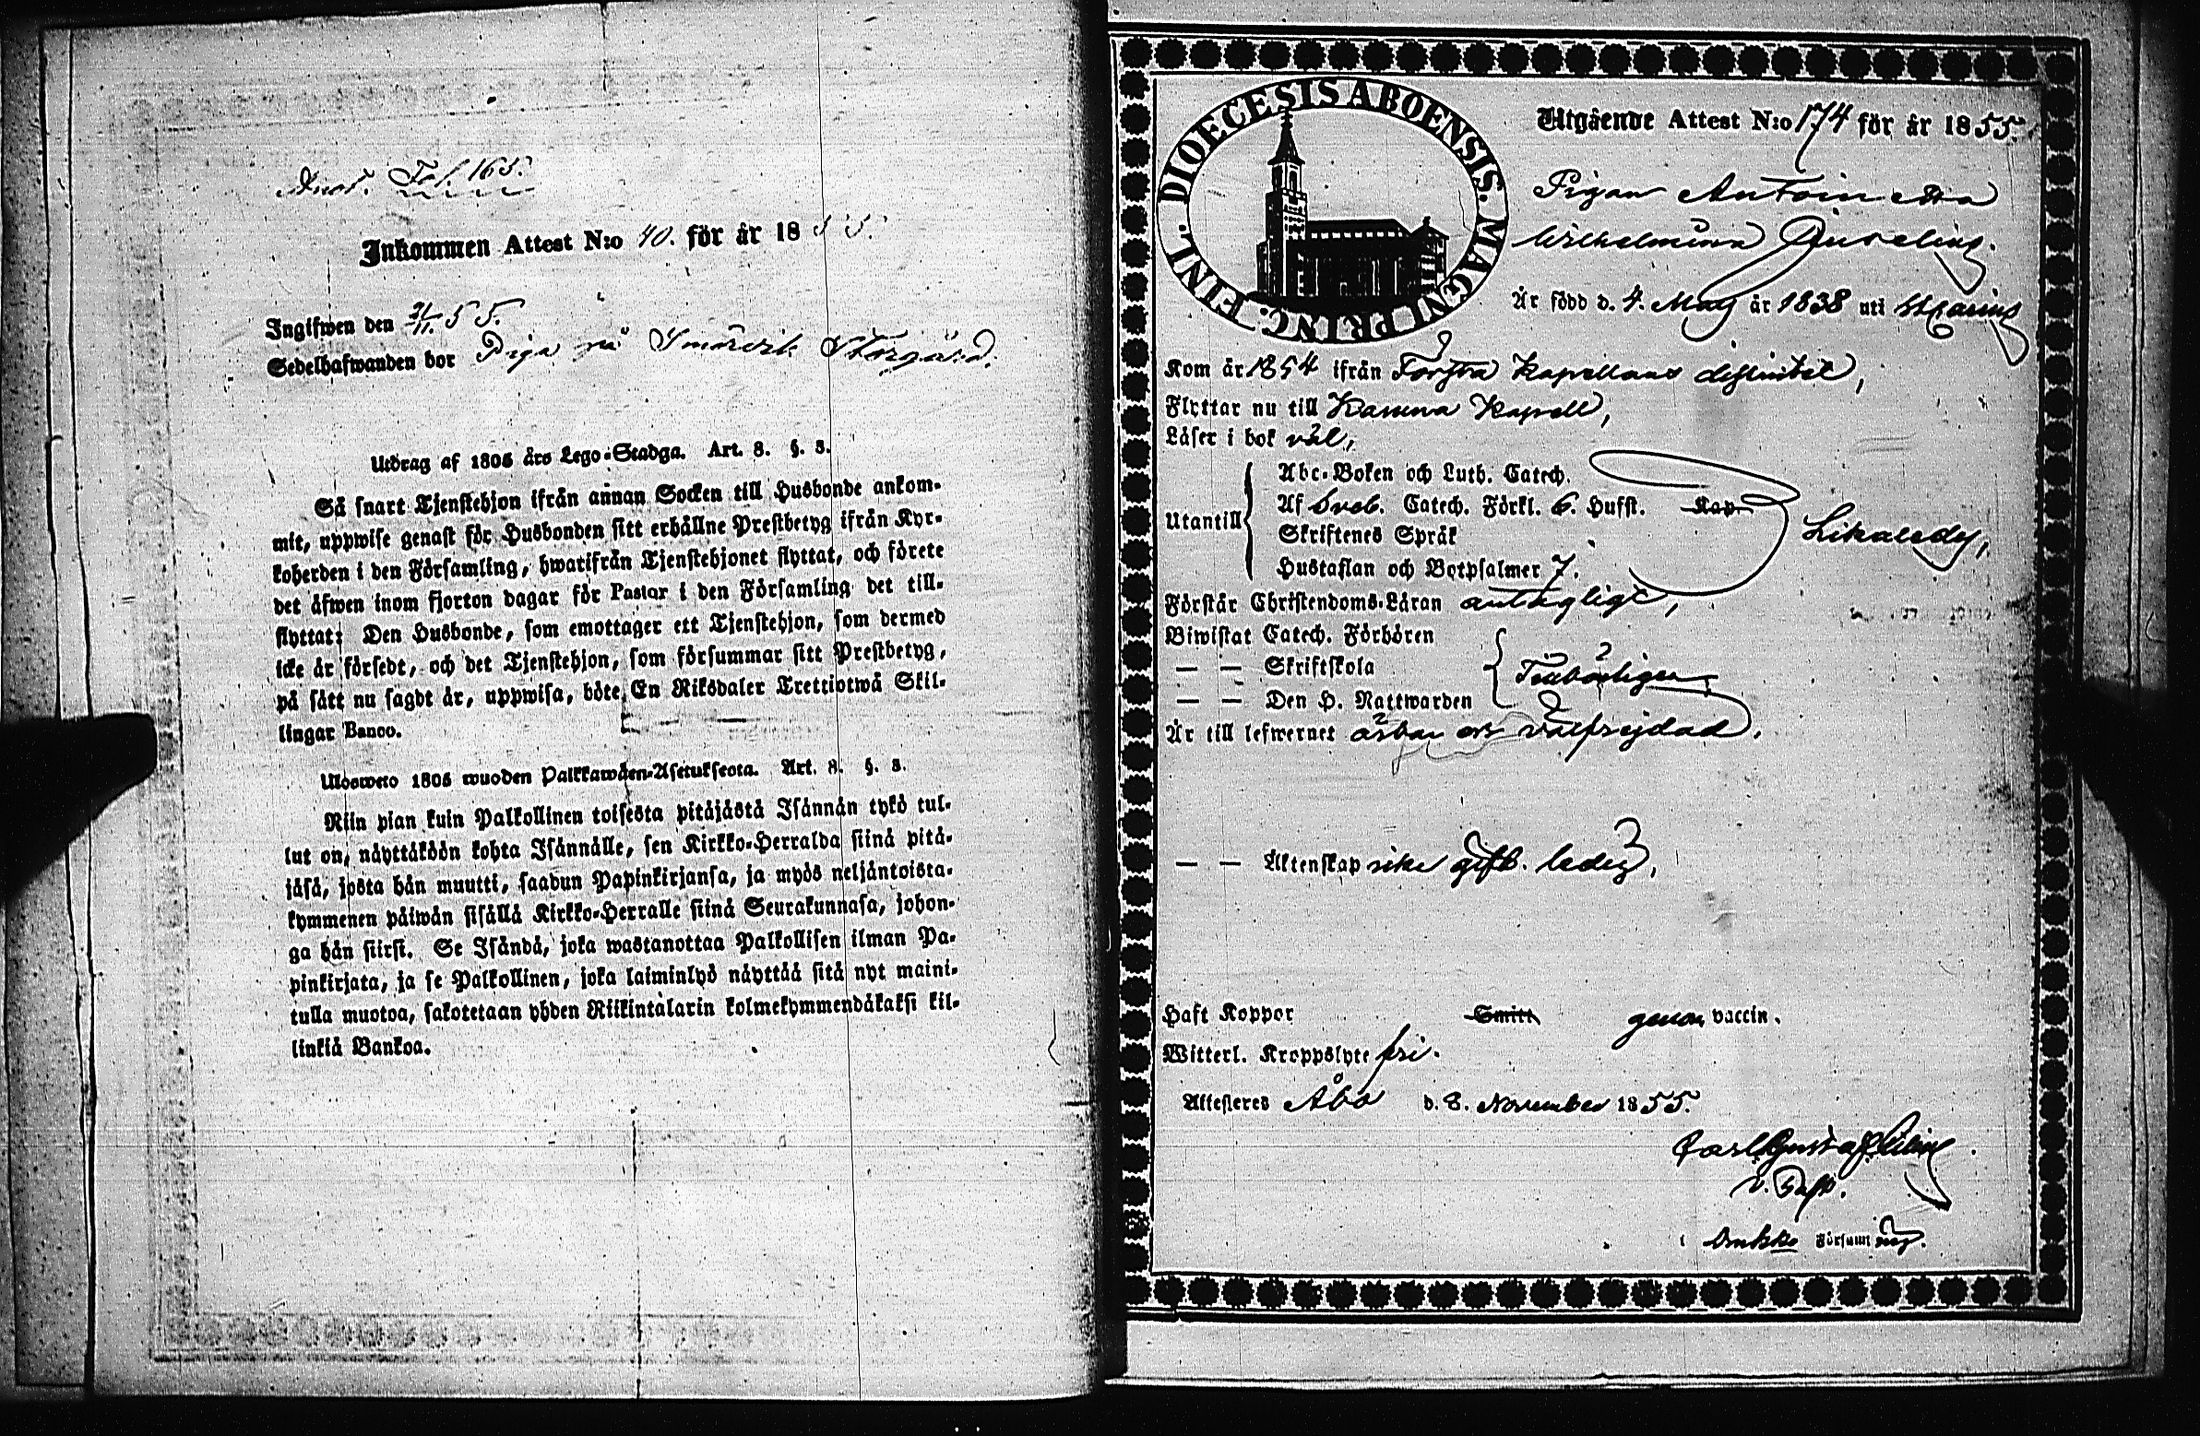 Fol. 165.
Inkommen Attest N:o 40. för år 1855.
Ingifwen den 21/11 55.
Sedelhafwanden bor Piga på Smörvik Storgård.
Utdrag af 1805 års Lego-Stadga. Art. 8. §. 3.
Så snart Tjenstehjon ifrån annan Socken till Husbonde ankom-
mit, uppwise genast för Husbonden sitt erhållne Prestbetyg ifrån Kyr-
koherden i den Församling, hwarifrån Tjenstehjonet flyttat, och förete
det äfwen inom fjorton dagar för Pastor i den Församling det till-
flyttat: Den Husbonde, som emottager ett Tjenstehjon, som dermed
icke är försedt, och det Tjenstehjon, som försummar sitt Prestbetyg,
på sätt nu sagdt är, uppwisa, böte En Riksdaler Trettiotwå Skil-
lingar Banco.
Ulosweto 1805 wuoden Palkkawäen-Asetuksesta. Art. 8. §. 3.
Niin pian kuin Palkollinen toisesta pitäjästä Isännän tykö tul-
lut on, näyttäköön kohta Isännälle, sen Kirkko-Herralda siinä pitä-
jäsä, josta hän muutti, saadun Papinkirjansa, ja myös neljäntoista-
kymmenen päiwän sisällä Kirkko-Herralle siinä Seurakunnasa, johon-
ga hän siirsi. Se Isändä, joka wastanottaa Palkollisen ilman Pa-
pinkirjata, ja se Palkollinen, joka laiminlyö näyttää sitä nyt maini-
tulla muotoa, sakotetaan yhden Riikintalarin kolmekymmendäkaksi kil-
linkiä Bankoa.
DIOECESIS ABOENSIS. MAGNI PRINC. FINL.
Utgående Attest N:o 174 för år 1855.
Pigan Antoinetta
Wilhelmina
Är född d. 4. Maj år 1838 uti
Kom år 1854 ifrån Första Kapellans distrikt,
Flyttar nu till Karuna Kapell,
Läser i bok väl,
Utantill
Abc-Boken och Luth. Catech.
Af Sveb. Catech. Förkl. 6. Hufst. Kap.
Skriftenes Språk
Hustaflan och Botpsalmer 7.
Likaledes,
Förstår Christendoms-Läran antagligt,
Biwistat Catech. Förhören
— — Skriftskola
— — Den H. Nattwarden
Tillbörligen,
Är till lefwernet ärbar och välfrejdad,
— — Äktenskap icke gift. ledig,
Haft Koppor Smitt genom vaccin.
Witterl. Kroppslyte fri.
Attesteres Åbo d. 8. November 1855.
Carl Gustaf
v. Past.
i Församling.